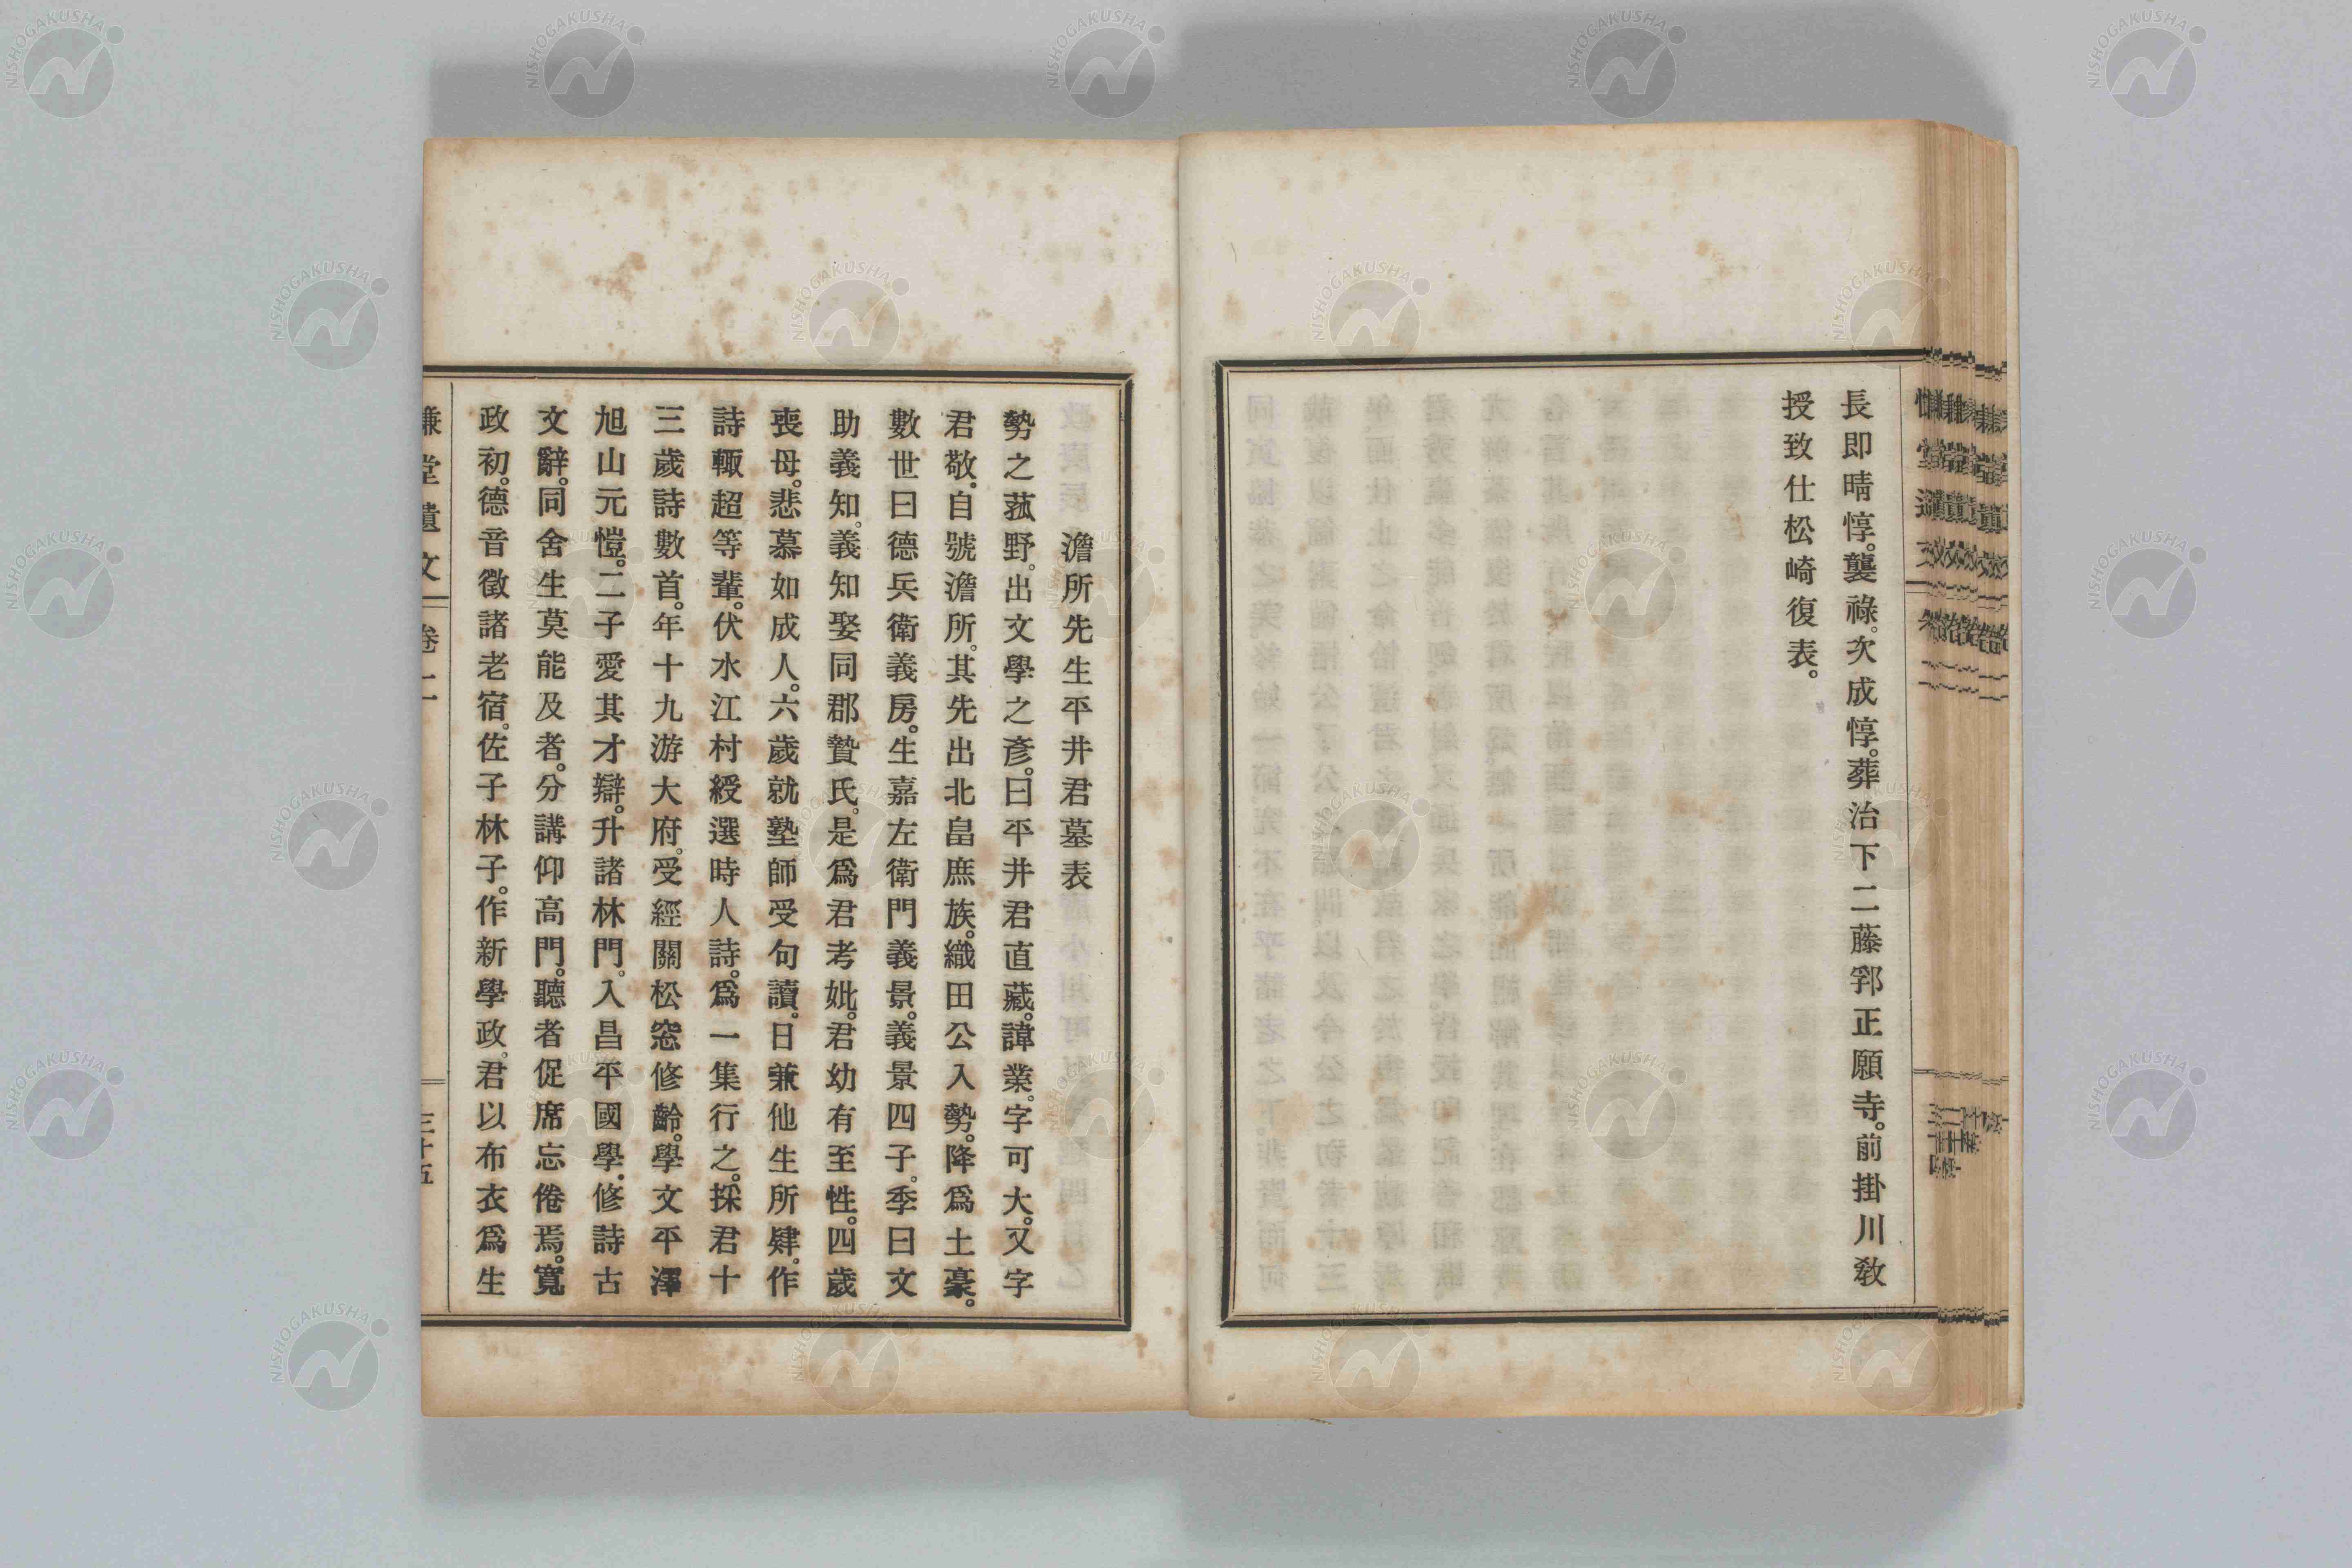 長即晴惇。襲祿。次成惇。葬治下二藤郛正願寺。前掛川敎
授致仕松崎復表。
澹所先生平井君墓表
勢之菰野。出文學之彥。曰平井君直藏。諱業。字可大。又字
君敬。自號澹所。其先出北畠庶族。織田公入勢。降爲土豪。
數世曰德兵衛義房。生嘉左衛門義景。義景四子。季曰文
助義知。義知娶同郡贄氏。是爲君考妣。君幼有至性。四歲
喪母。悲慕如成人。六歲就塾師受句讀。日兼他生所肄。作
詩輙超等輩。伏水江村綬選時人詩。爲一集行之。採君十
三歲詩數首。年十九游大府。受經關松窓修齡。學文平澤
旭山元愷。二子愛其才辯。升諸林門。入昌平國學。修詩古
文辭。同舍生莫能及者。分講仰高門。聽者促席忘倦焉。寬
政初。德音徵諸老宿。佐子林子。作新學政。君以布衣爲生
慊堂遺文 卷二 三十五
NISHOGAKUSHA